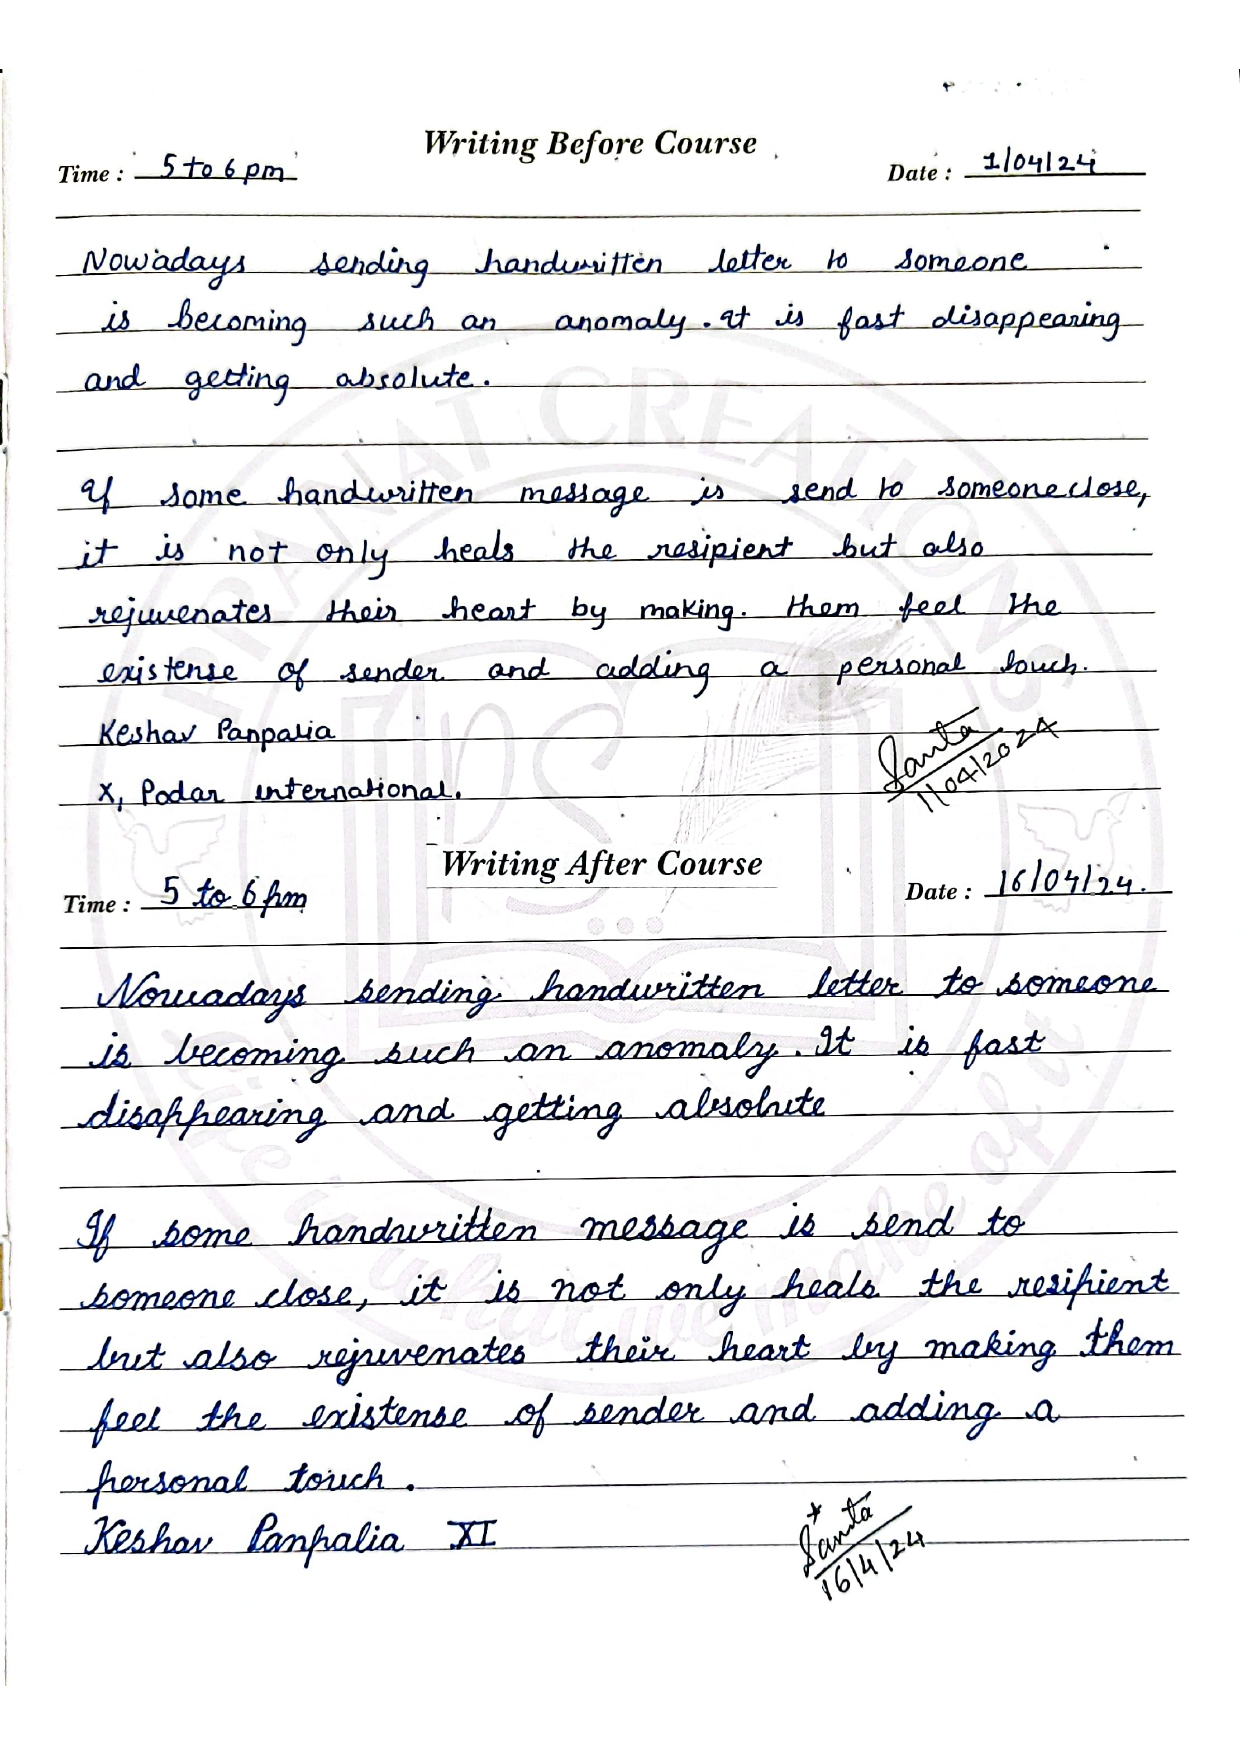 Writing Before Course
Time : 5 to 6 pm Date : 1/04/24
Nowadays sending handwritten letter to someone
is becoming such an anomaly. It is fast disappearing
and getting absolute.
If some handwritten message is send to someone close,
it is not only heals the resipient but also
rejuvenates their heart by making. them feel the
existense of sender and adding a personal touch.
Keshav Panpalia
X, Podar international.
1/04/2024
Writing After Course
Time : 5 to 6 pm Date : 16/04/24.
Nowadays sending handwritten letter to someone
is becoming such an anomaly. It is fast
disappearing and getting absolute
If some handwritten message is send to
someone close, it is not only heals the resipient
but also rejuvenates their heart by making them
feel the existense of sender and adding a
personal touch.
Keshav Panpalia XI
16/4/24
PRANAT CREATIONS